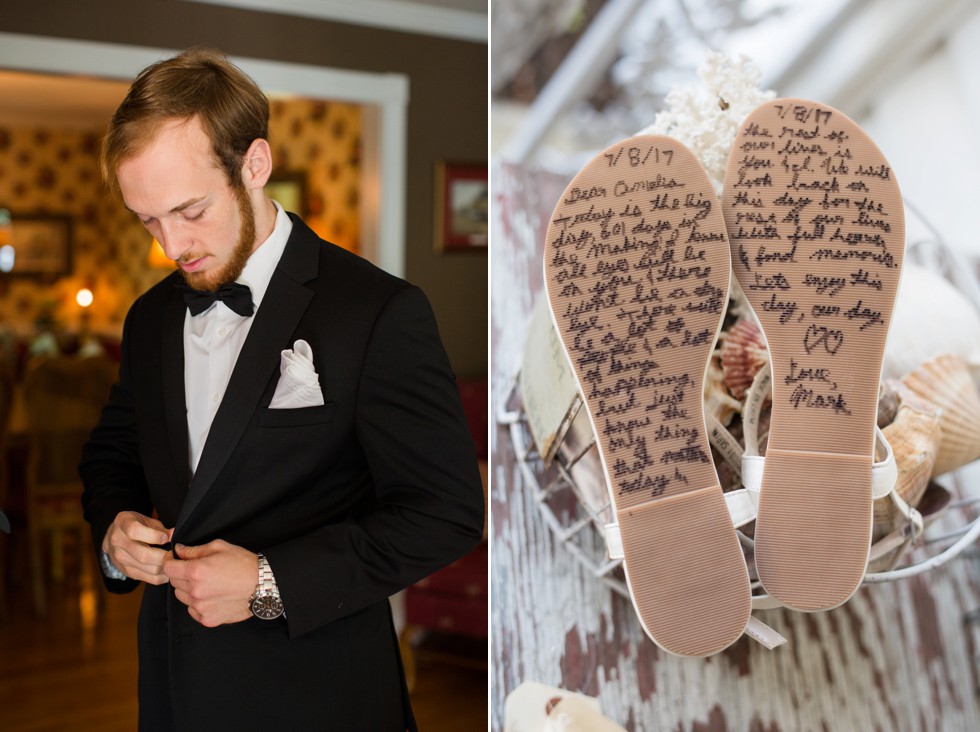 7/8/17
Dear Amelia
Today is the big
day, 601 days in
the making. I know
all eyes will be
on you & there
wont be a dry
eye. There will
be a lot of
a lot
of things
happening,
but just
know the
only thing
that matters
today is
7/8/17
the rest of
our lives is
You & I. We will
look back on
this day for the
rest of our lives
with full hearts
& fond memories.
Lets enjoy this
day, our day,
Love,
Mark